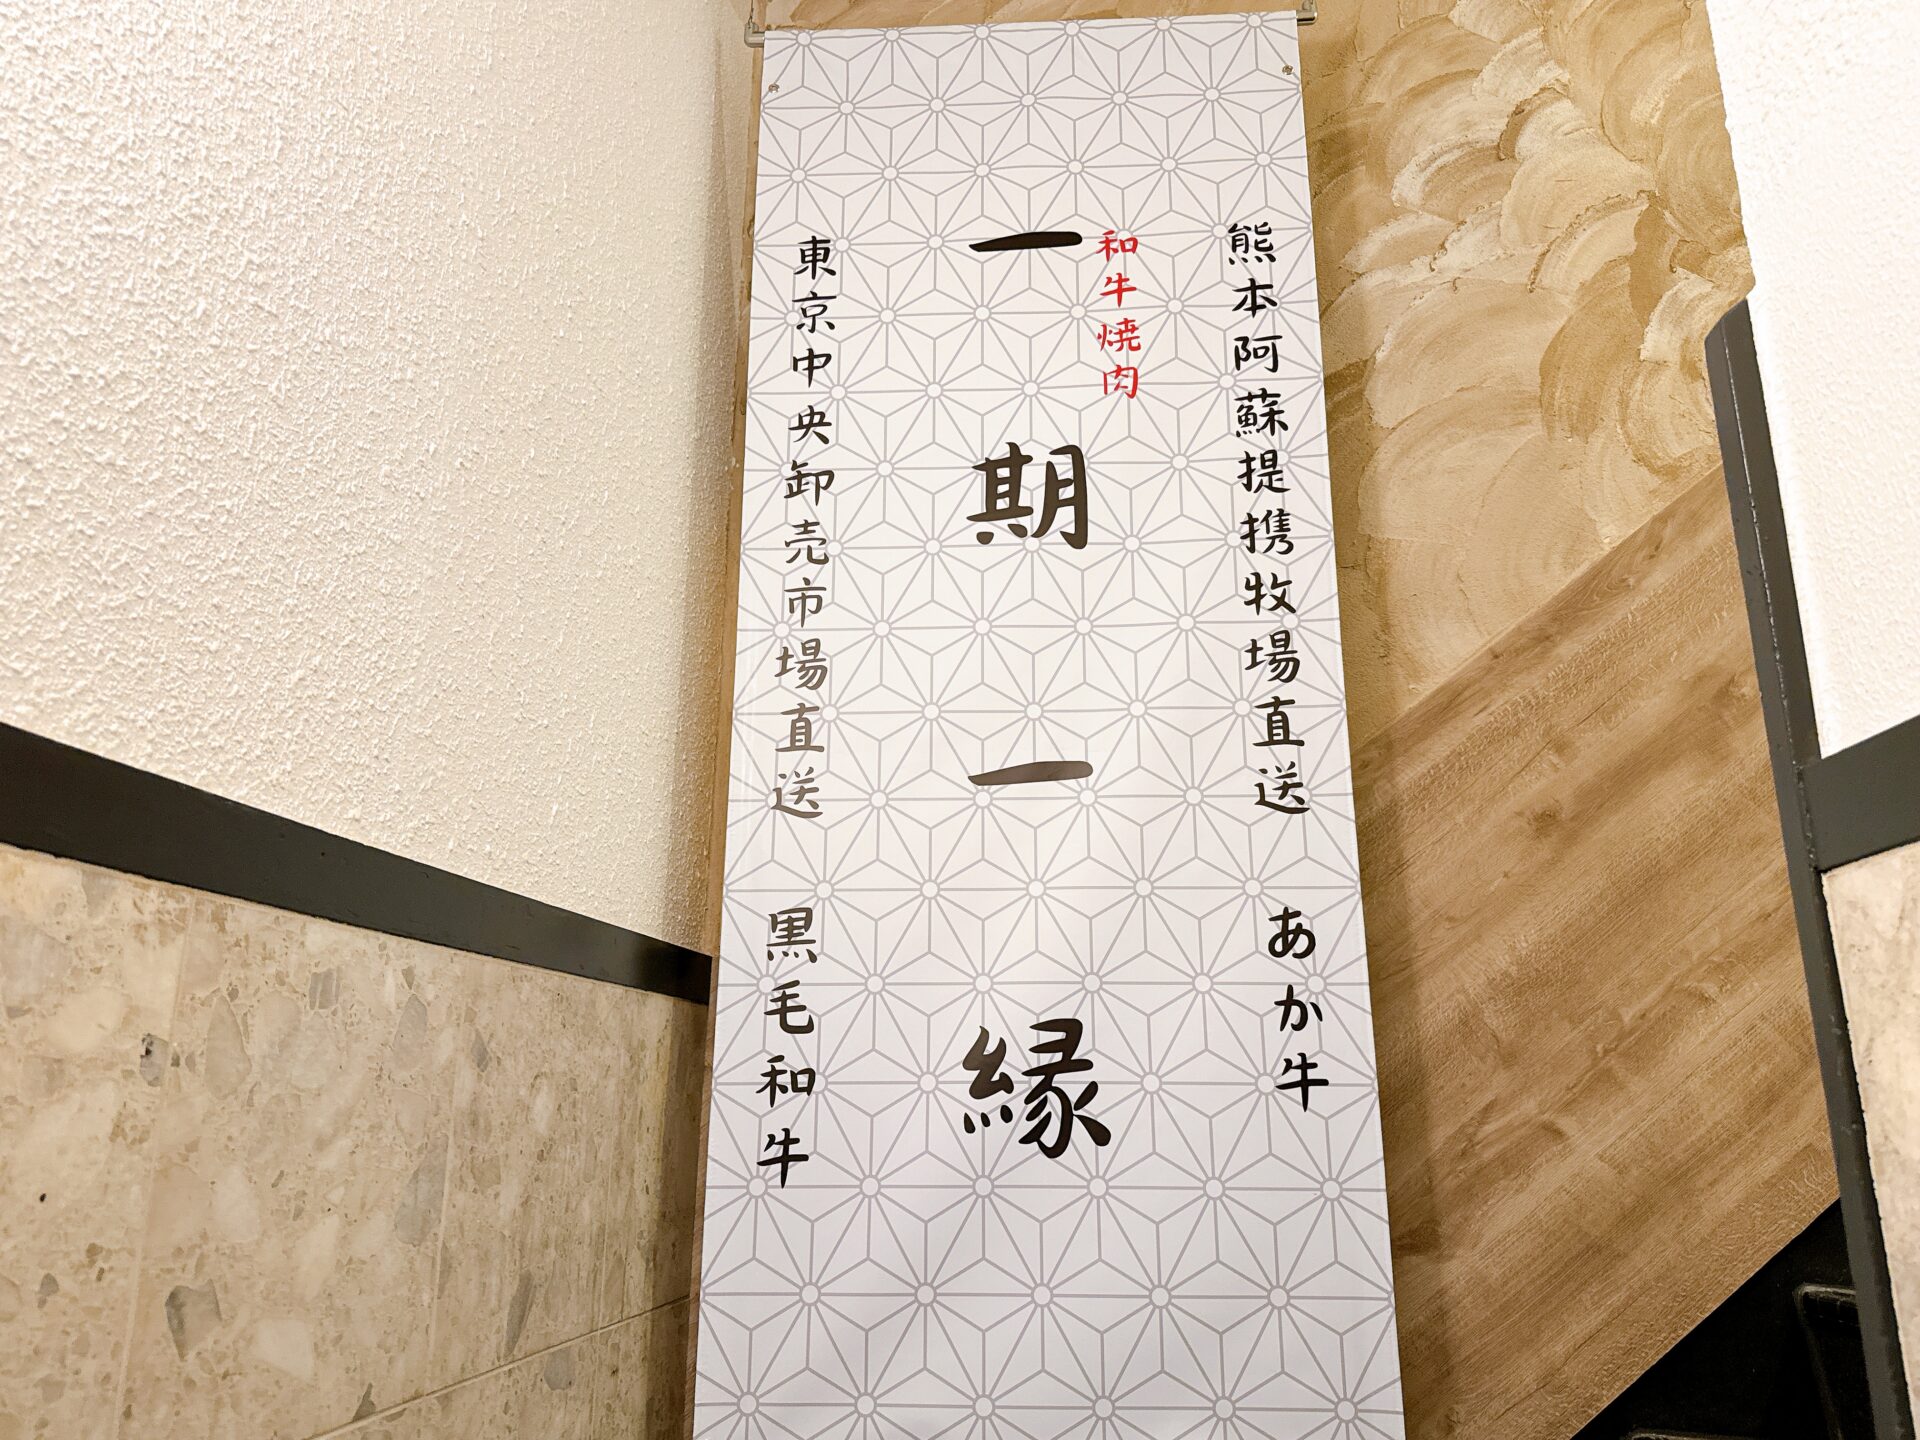 熊本阿蘇提携牧場直送 あか牛
和牛焼肉
一期一縁
東京中央卸売市場直送 黒毛和牛